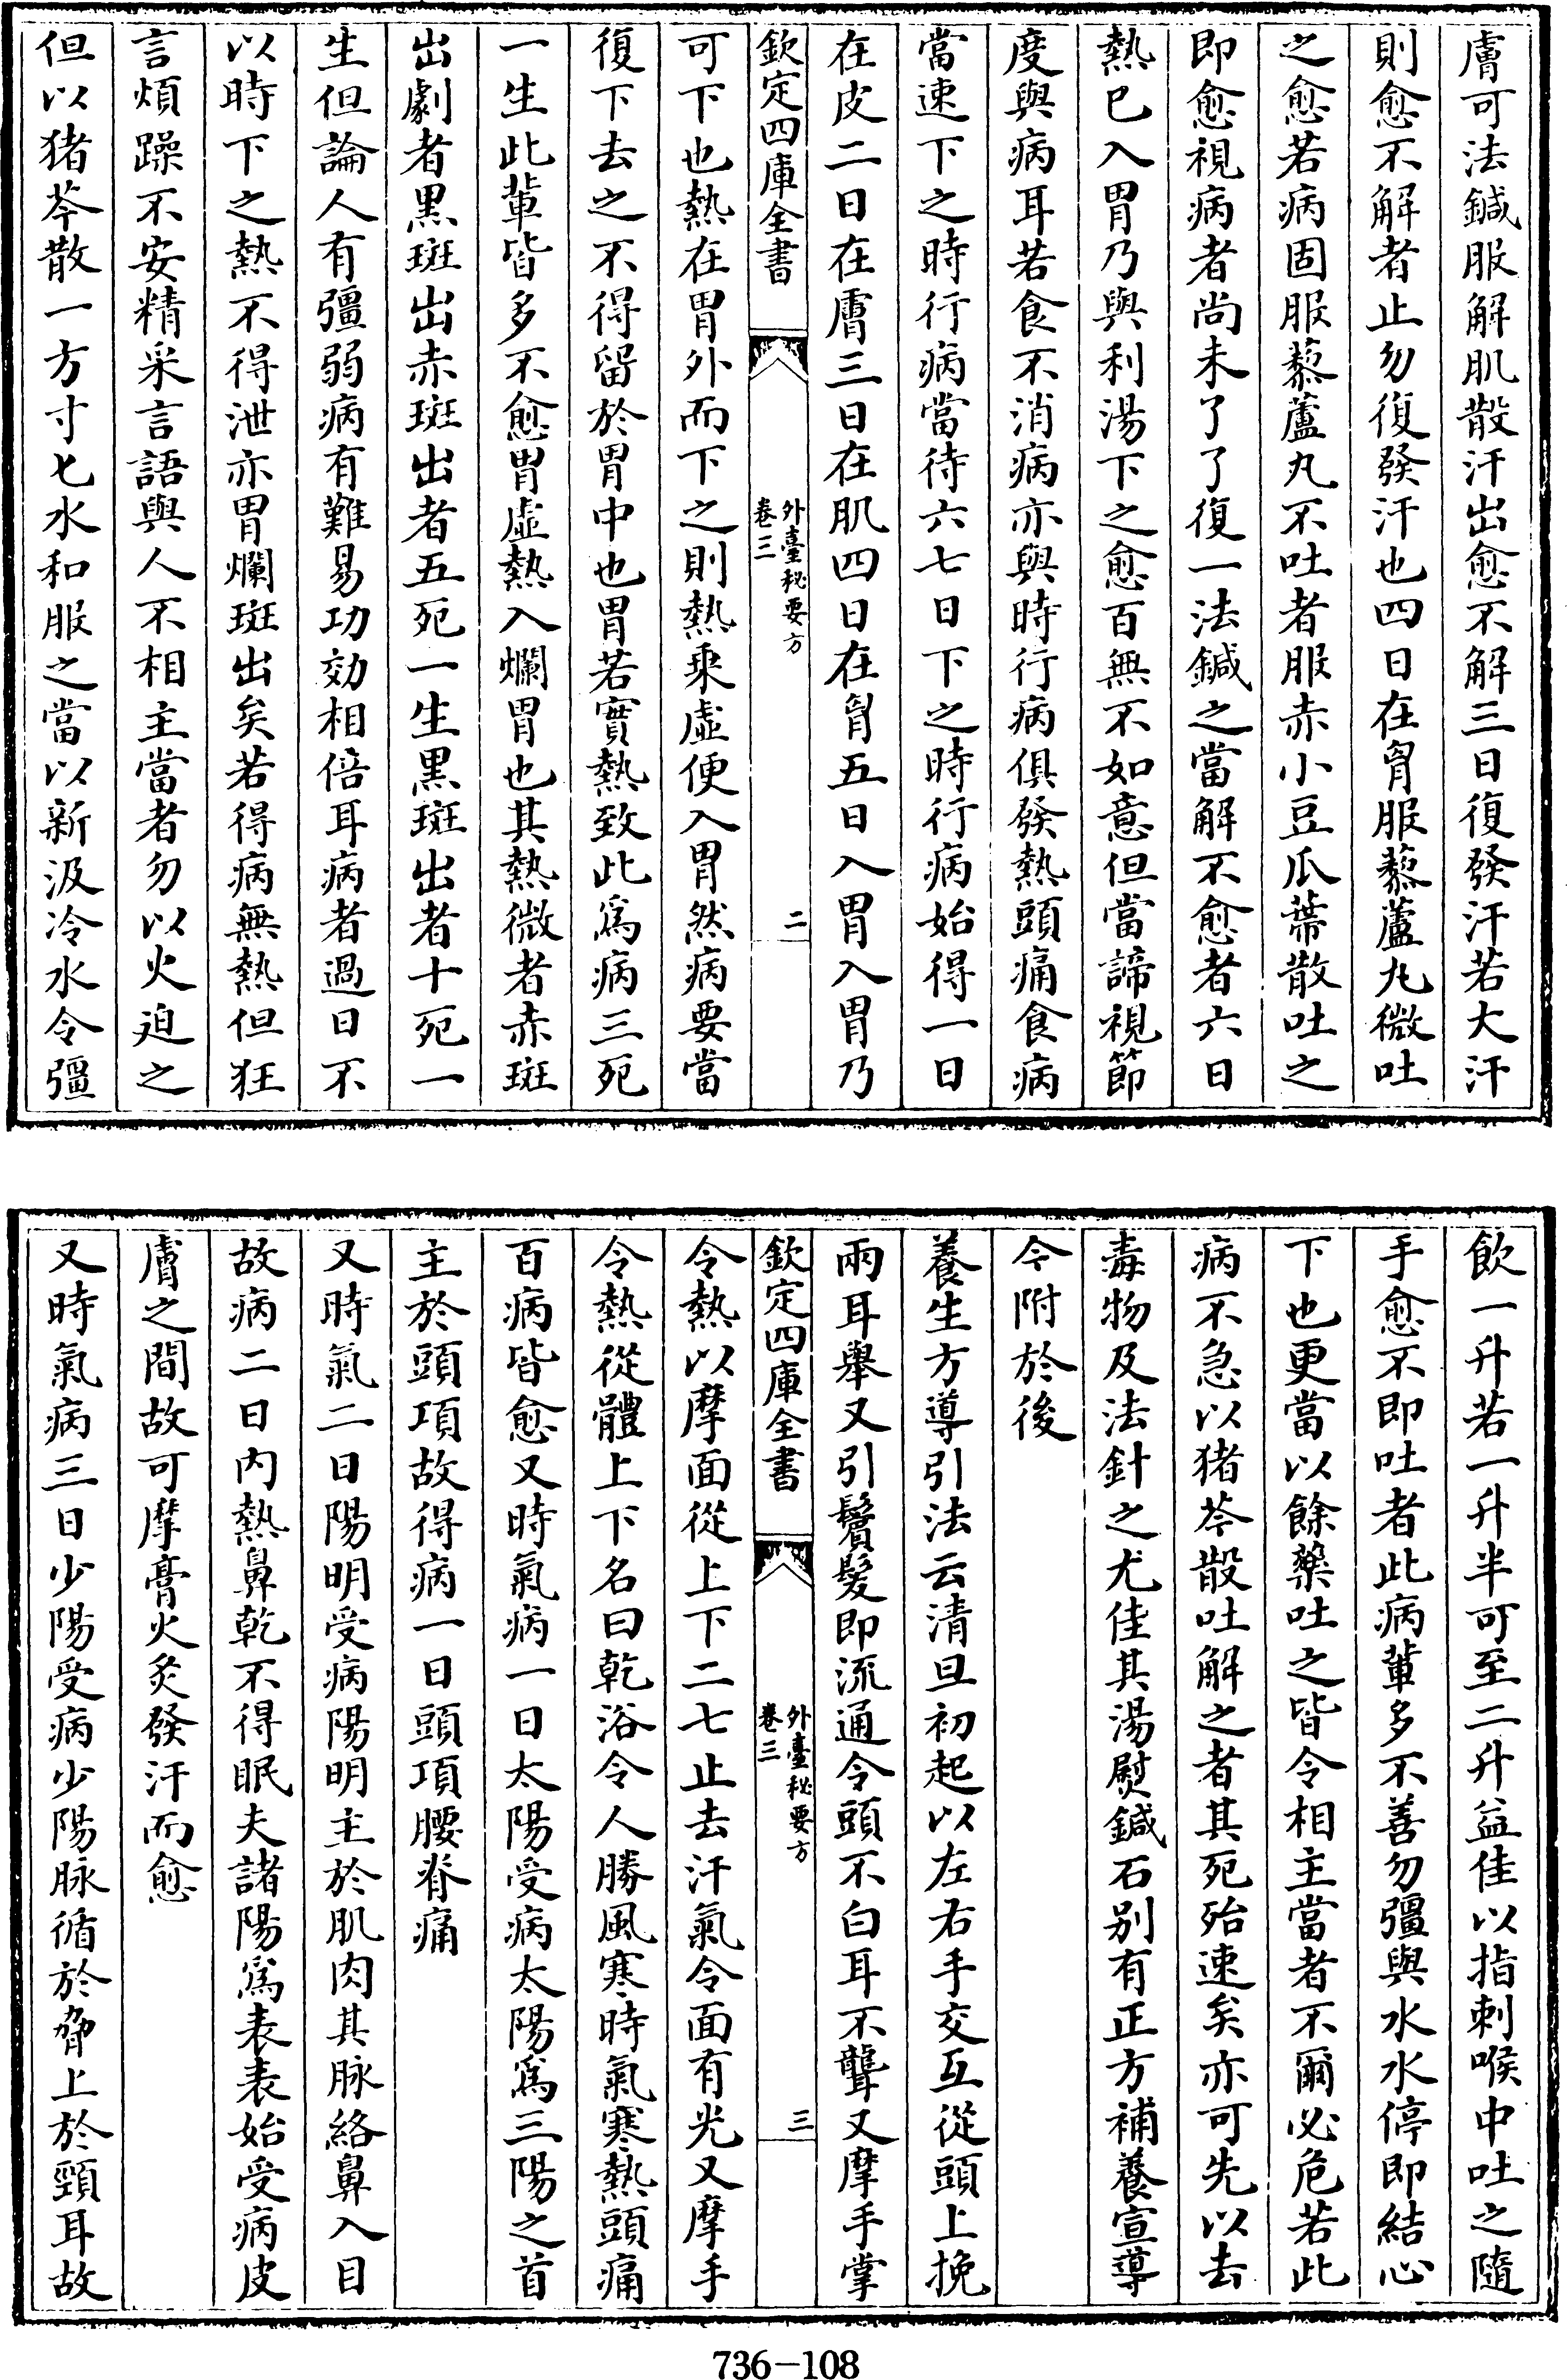 膚可法鍼服解肌散汗出愈不解三日復發汗若大汗
則愈不解者止勿復發汗也四日在胷服藜蘆丸微吐
之愈若病固服藜蘆丸不吐者服赤小豆瓜蔕散吐之
即愈視病者尚未了了復一法鍼之當解不愈者六日
熱已入胃乃與利湯下之愈百無不如意但當諦視節
度與病耳若食不消病亦與時行病俱發熱頭痛食病
當速下之時行病當待六七日下之時行病始得一日
在皮二日在膚三日在肌四日在胷五日入胃入胃乃
欽定四庫全書
外臺秘要方
卷三
二
可下也熱在胃外而下之則熱乘虛便入胃然病要當
復下去之不得留於胃中也胃若實熱致此爲病三死
一生此輩皆多不愈胃虛熱入爛胃也其熱微者赤斑
出劇者黒斑出赤斑出者五死一生黒斑出者十死一
生但論人有彊弱病有難易功効相倍耳病者過日不
以時下之熱不得泄亦胃爛斑出矣若得病無熱但狂
言煩躁不安精采言語與人不相主當者勿以火迫之
但以猪苓散一方寸匕水和服之當以新汲冷水令彊
飲一升若一升半可至二升益佳以指刺喉中吐之隨
手愈不即吐者此病輩多不善勿彊與水水停即結心
下也更當以餘藥吐之皆令相主當者不爾必危若此
病不急以猪苓散吐解之者其死殆速矣亦可先以去
毒物及法針之尤佳其湯熨鍼石别有正方補養宣導
今附於後
養生方導引法云清旦初起以左右手交互從頭上挽
兩耳舉又引鬢髮即流通令頭不白耳不聾又摩手掌
欽定四庫全書
外臺秘要方
卷三
三
令熱以摩面從上下二七止去汗氣令面有光又摩手
令熱從體上下名曰乾浴令人勝風寒時氣寒熱頭痛
百病皆愈又時氣病一日太陽受病太陽爲三陽之首
主於頭項故得病一日頭項腰脊痛
又時氣二日陽明受病陽明主於肌肉其脉絡鼻入目
故病二日内熱鼻乾不得眠夫諸陽爲表表始受病皮
膚之間故可摩膏火炙發汗而愈
又時氣病三日少陽受病少陽脉循於脅上於頸耳故
736-108